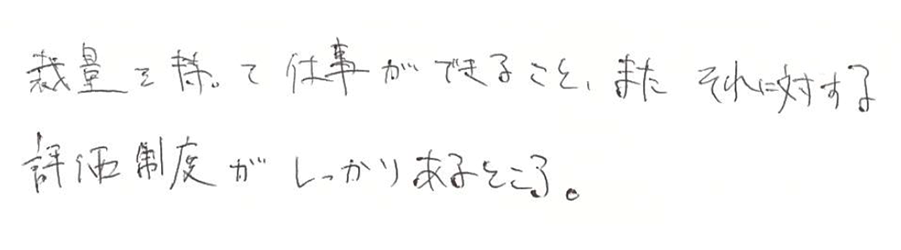 裁量を持って仕事ができること、また それに対する
評価制度が しっかりあるところ。